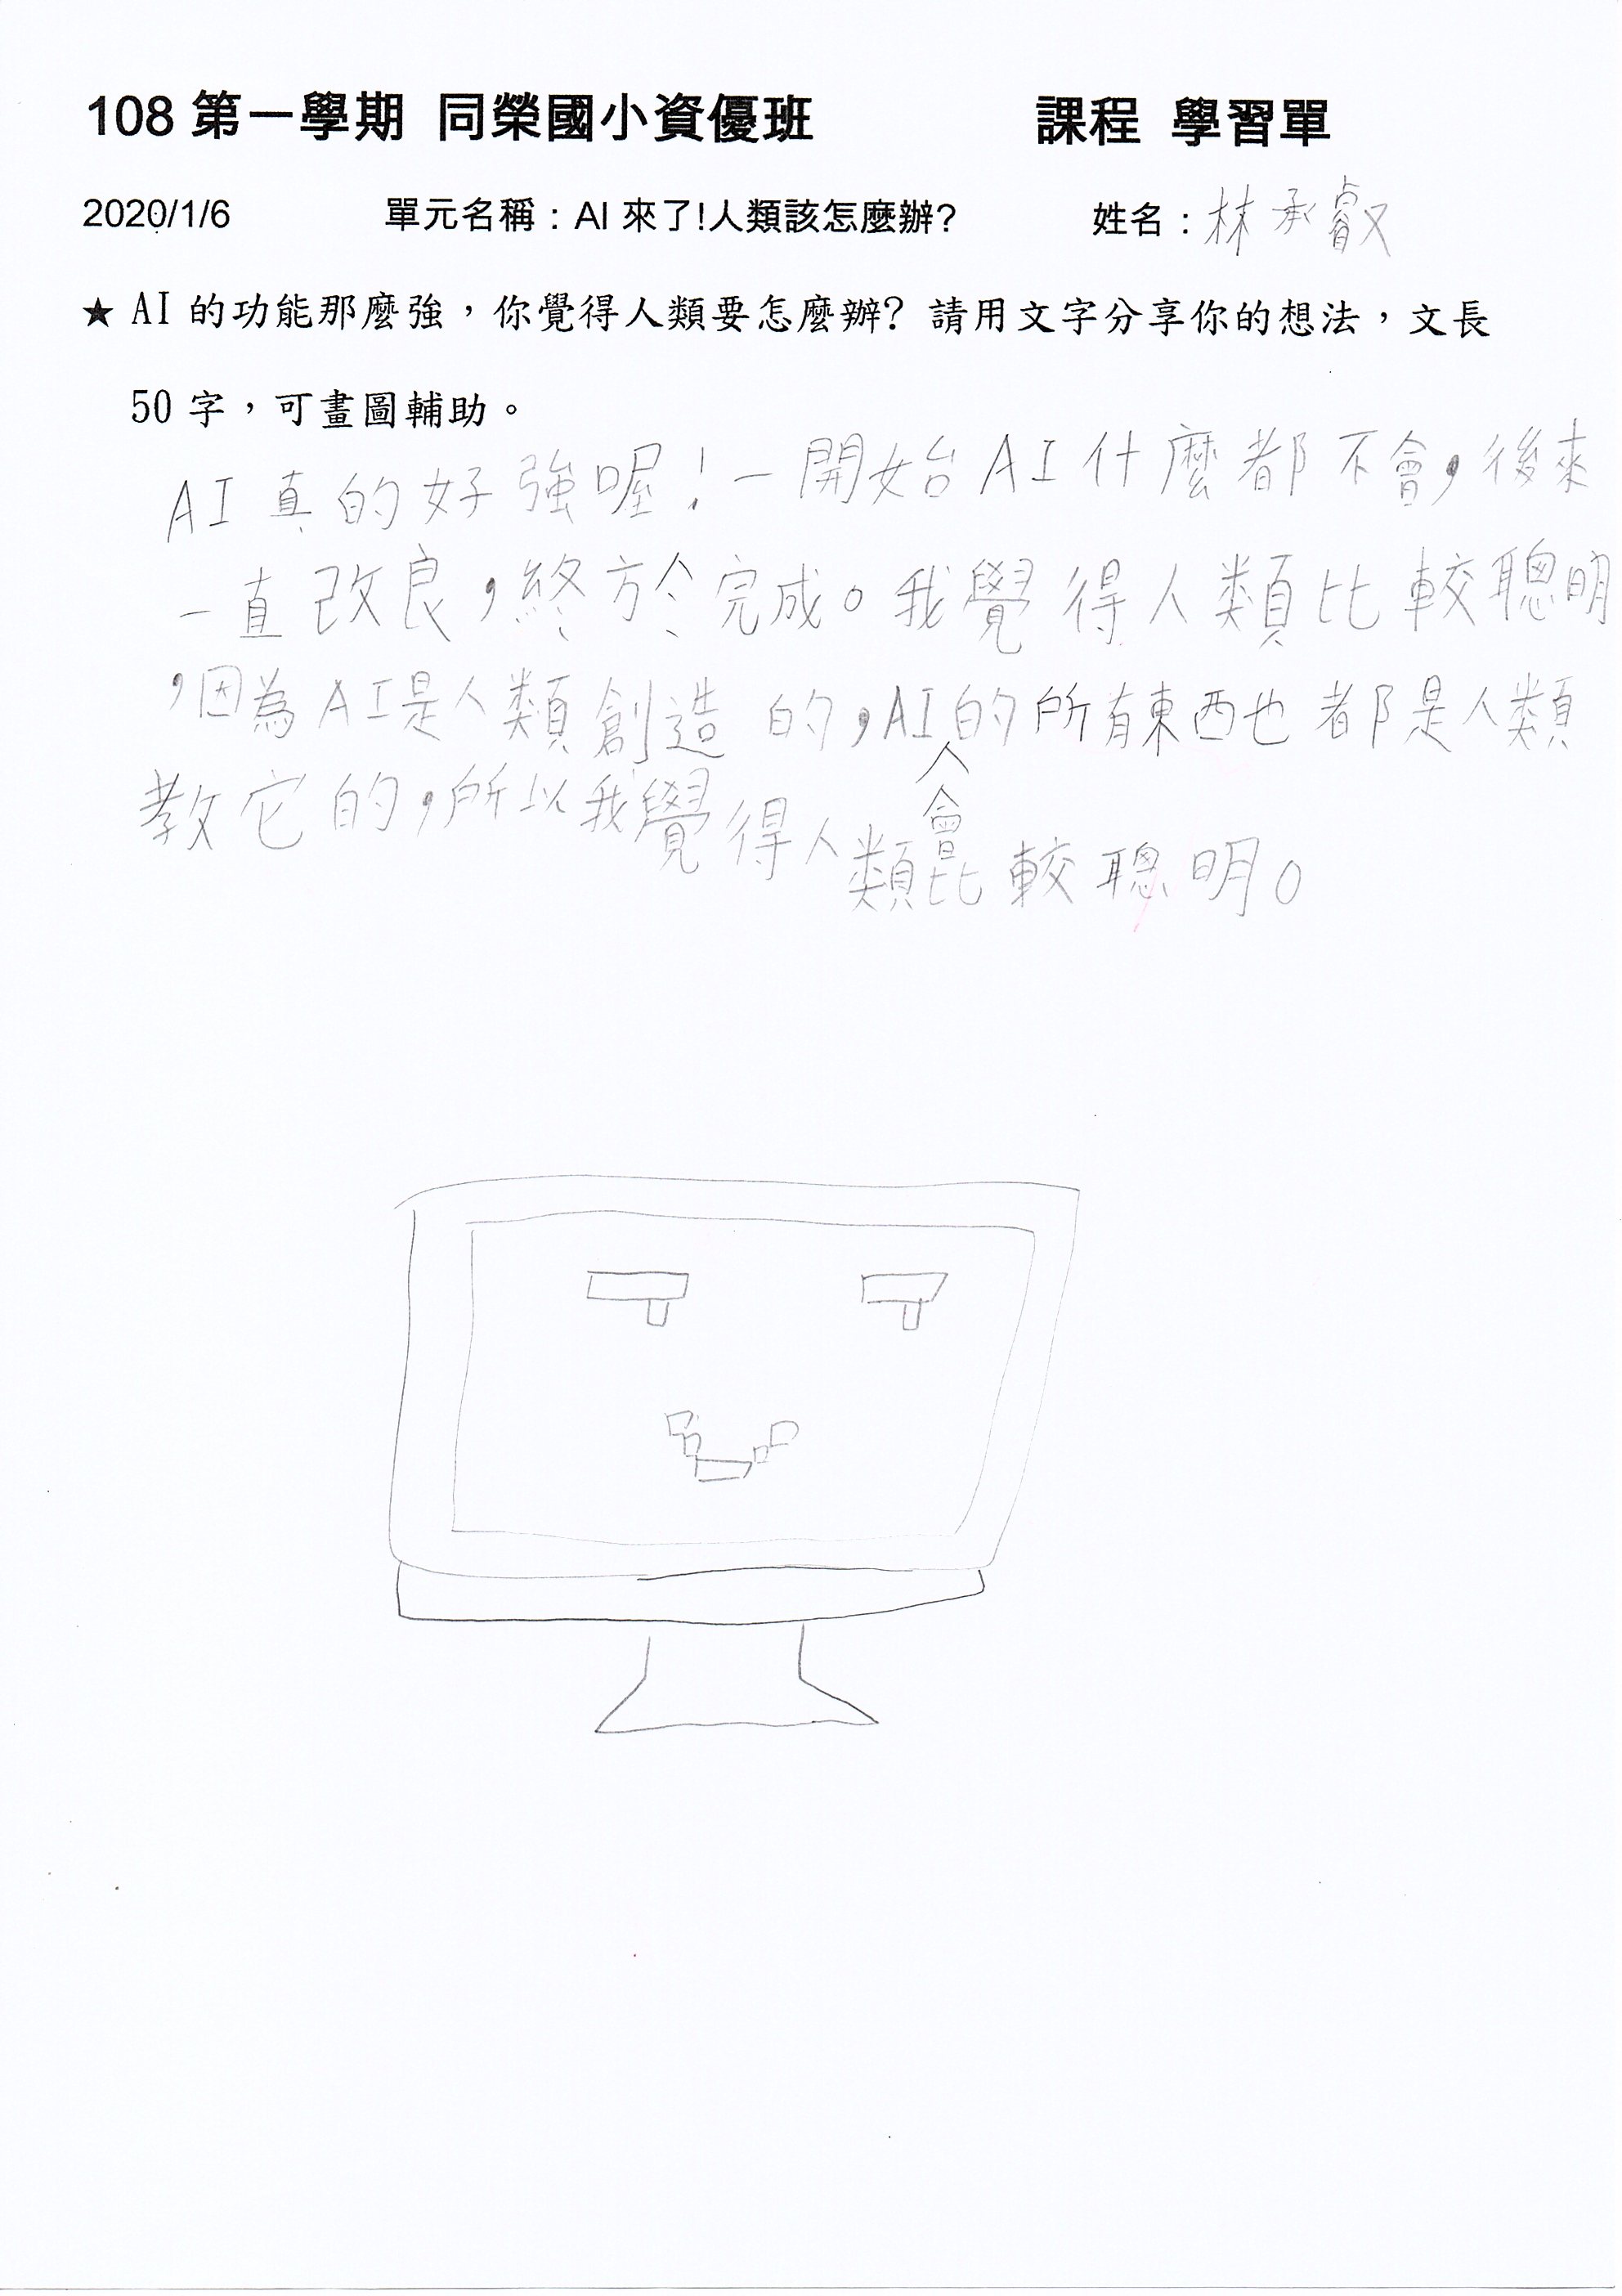 108 第一學期 同榮國小資優班 課程 學習單
2020/1/6 單元名稱：AI 來了!人類該怎麼辦? 姓名：林承叡
★ AI 的功能那麼強，你覺得人類要怎麼辦? 請用文字分享你的想法，文長
50 字，可畫圖輔助。
AI真的好強喔！一開始AI什麼都不會，後來
一直改良，終於完成。我覺得人類比較聰明
，因為AI是人類創造的，AI的所有東西也都是人類
教它的，所以我覺得人類會比較聰明。